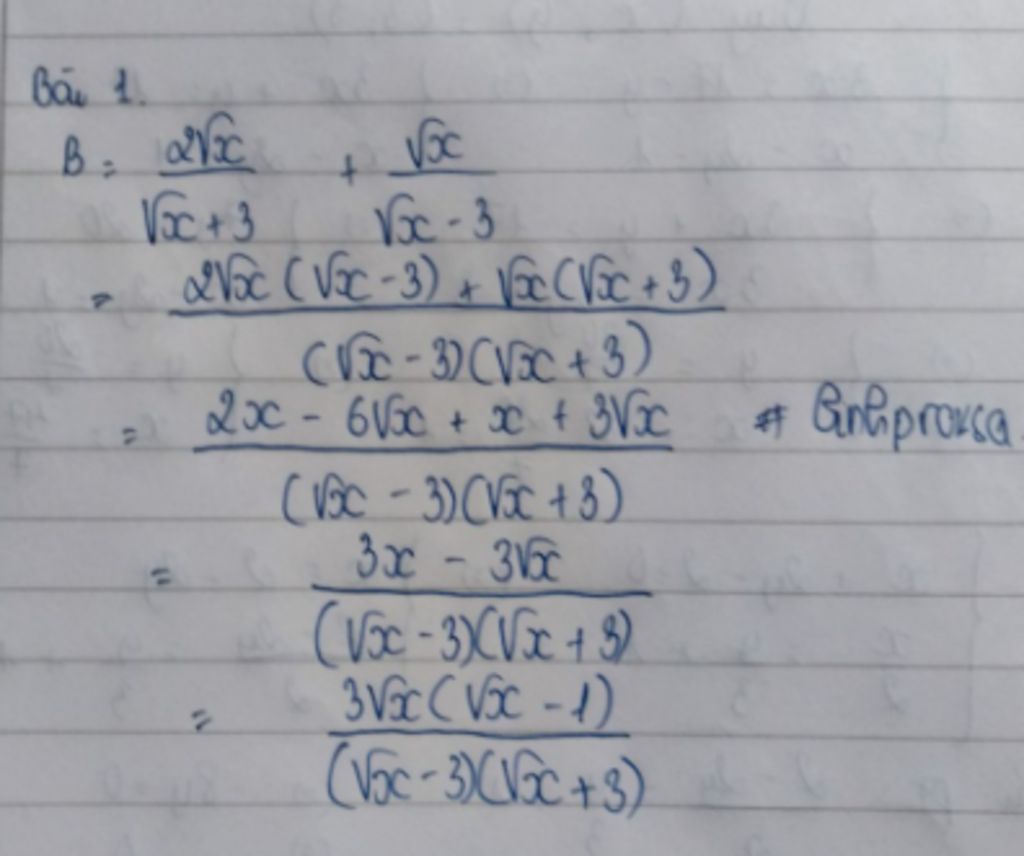 Bài 1.
B = 2√x / (√x + 3) + √x / (√x - 3)
= (2√x (√x - 3) + √x (√x + 3)) / ((√x - 3)(√x + 3))
= (2x - 6√x + x + 3√x) / ((√x - 3)(√x + 3)) #
= (3x - 3√x) / ((√x - 3)(√x + 3))
= (3√x (√x - 1)) / ((√x - 3)(√x + 3))